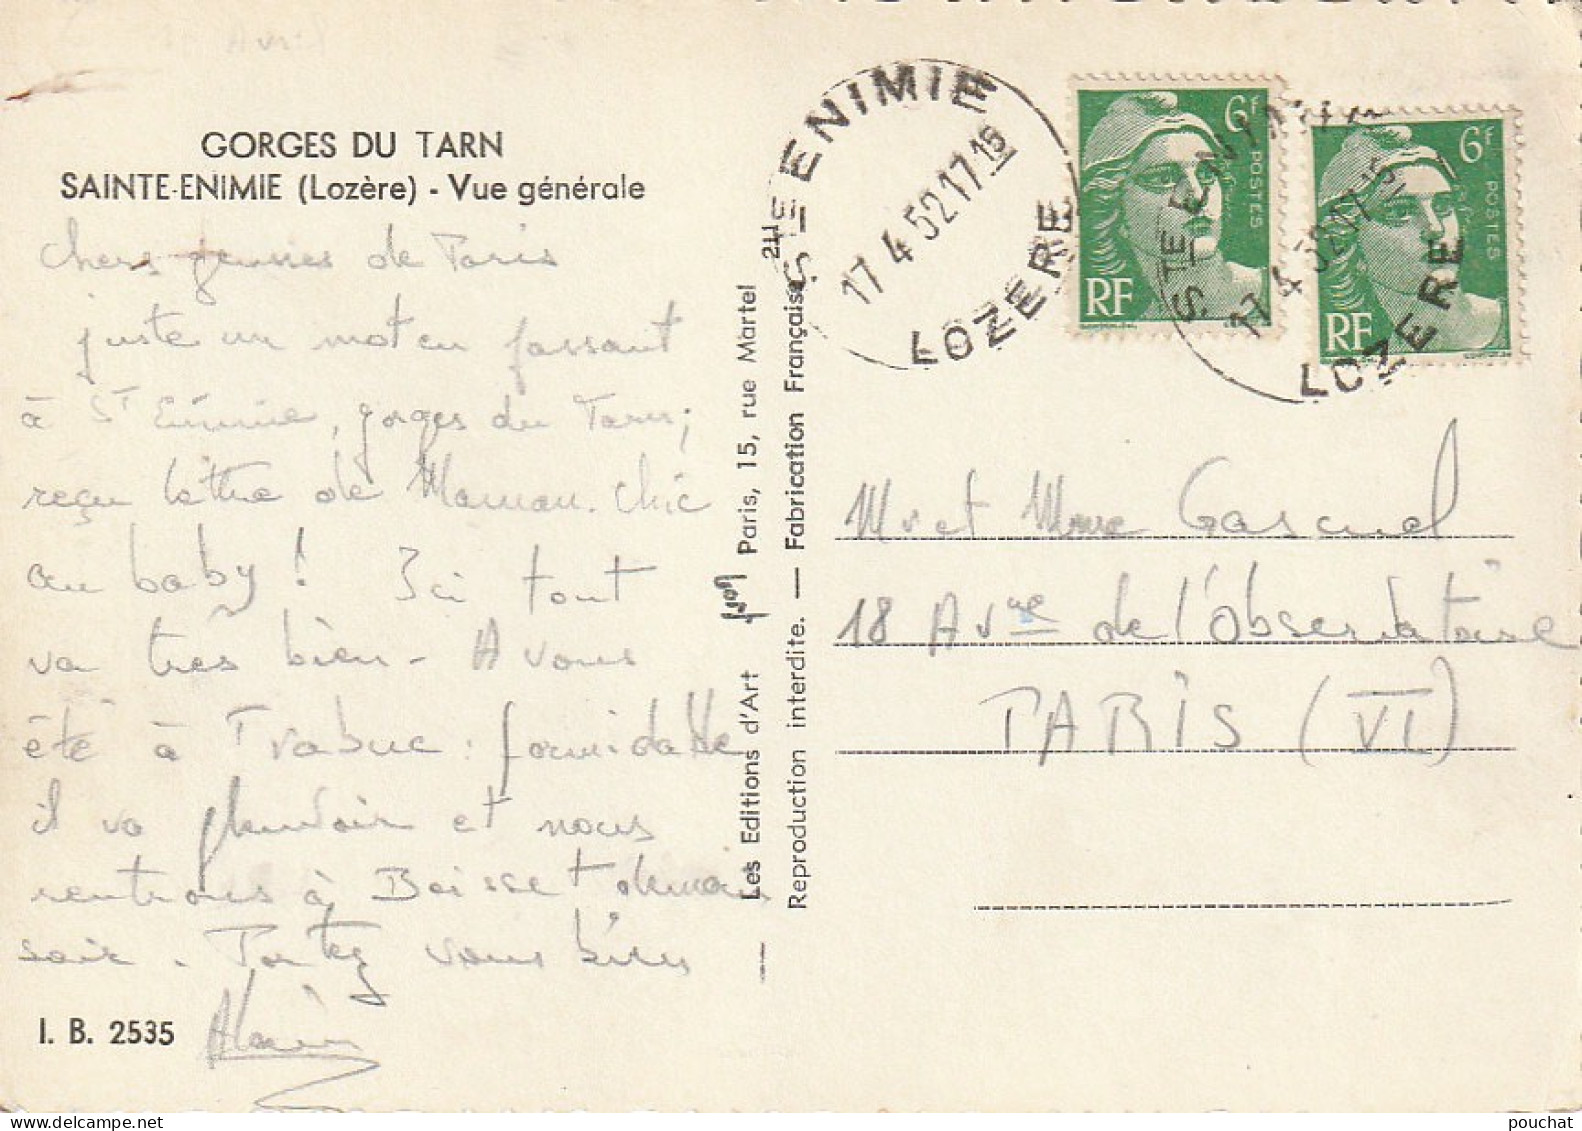 Avril
GORGES DU TARN
SAINTE-ENIMIE (Lozère) - Vue générale
chers jeunes de Paris
juste un mot en passant
à St Enimie, gorges du Tarn;
reçu lettre de Maman. Chic
au baby! Ici tout
va très bien - Avons
été à Trabuc : formidable
il va pleuvoir et nous
rentrons à Boisset demain
soir. Portez vous bien
Alain
I. B. 2535
Les Editions d'Art Yvon Paris, 15, rue Martel
Reproduction interdite. — Fabrication Française
STE ENIMIE
17 15
17 4 52
LOZERE
6f
POSTES
RF
STE ENIMIE
17 15
17 4 52
LOZERE
6f
POSTES
RF
Mr et Mme Gascuel
18 Avnue de l'Observatoire
PARIS (VI)
pouchat